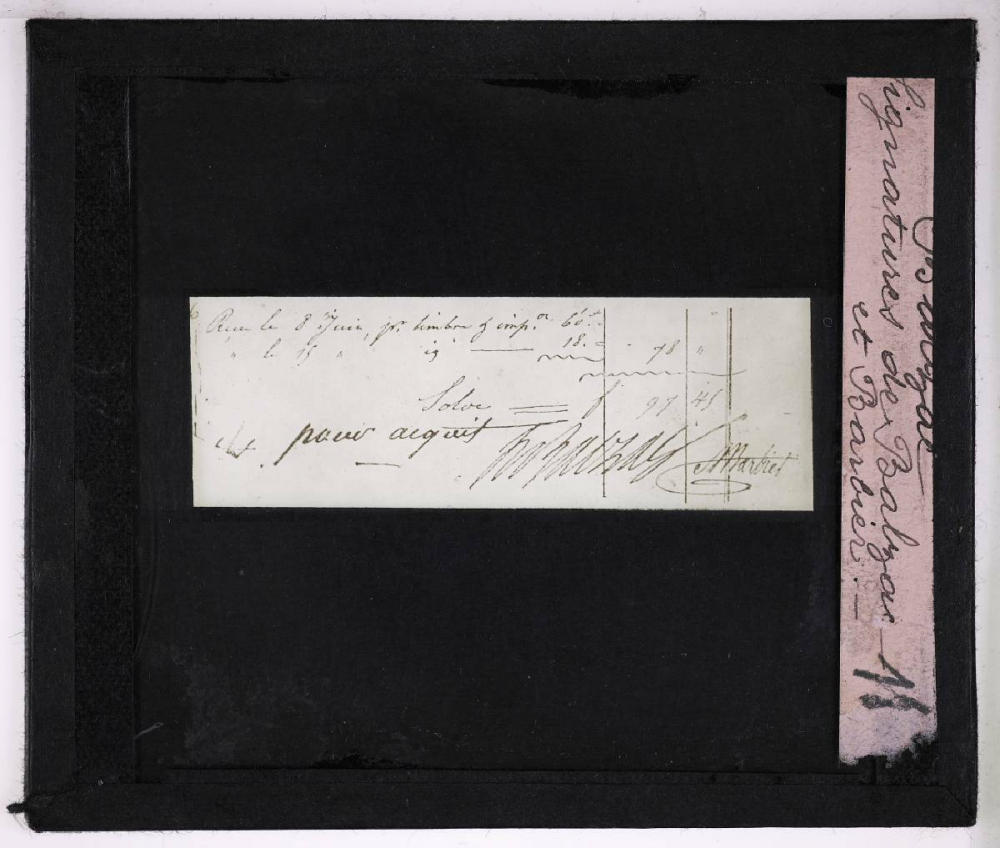 Reçu le 8 Juin, pr. timbre & impon 60 "
" le 15 " id 18. " 78 "
Solde f 97 45
pour acquit
h Balzac ABarbier
Balzac
Signatures de Balzac
et Barbier. —